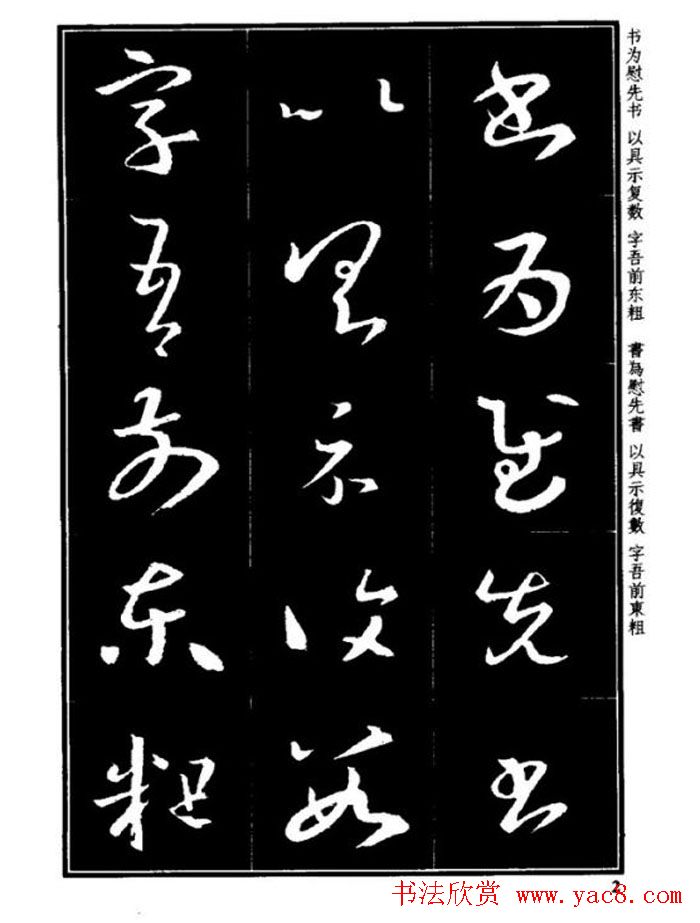 書為慰先書
以具示復數
字吾前東粗
书为慰先书 以具示复数 字吾前东粗
書為慰先書 以具示復數 字吾前東粗
2
书法欣赏 www.yac8.com